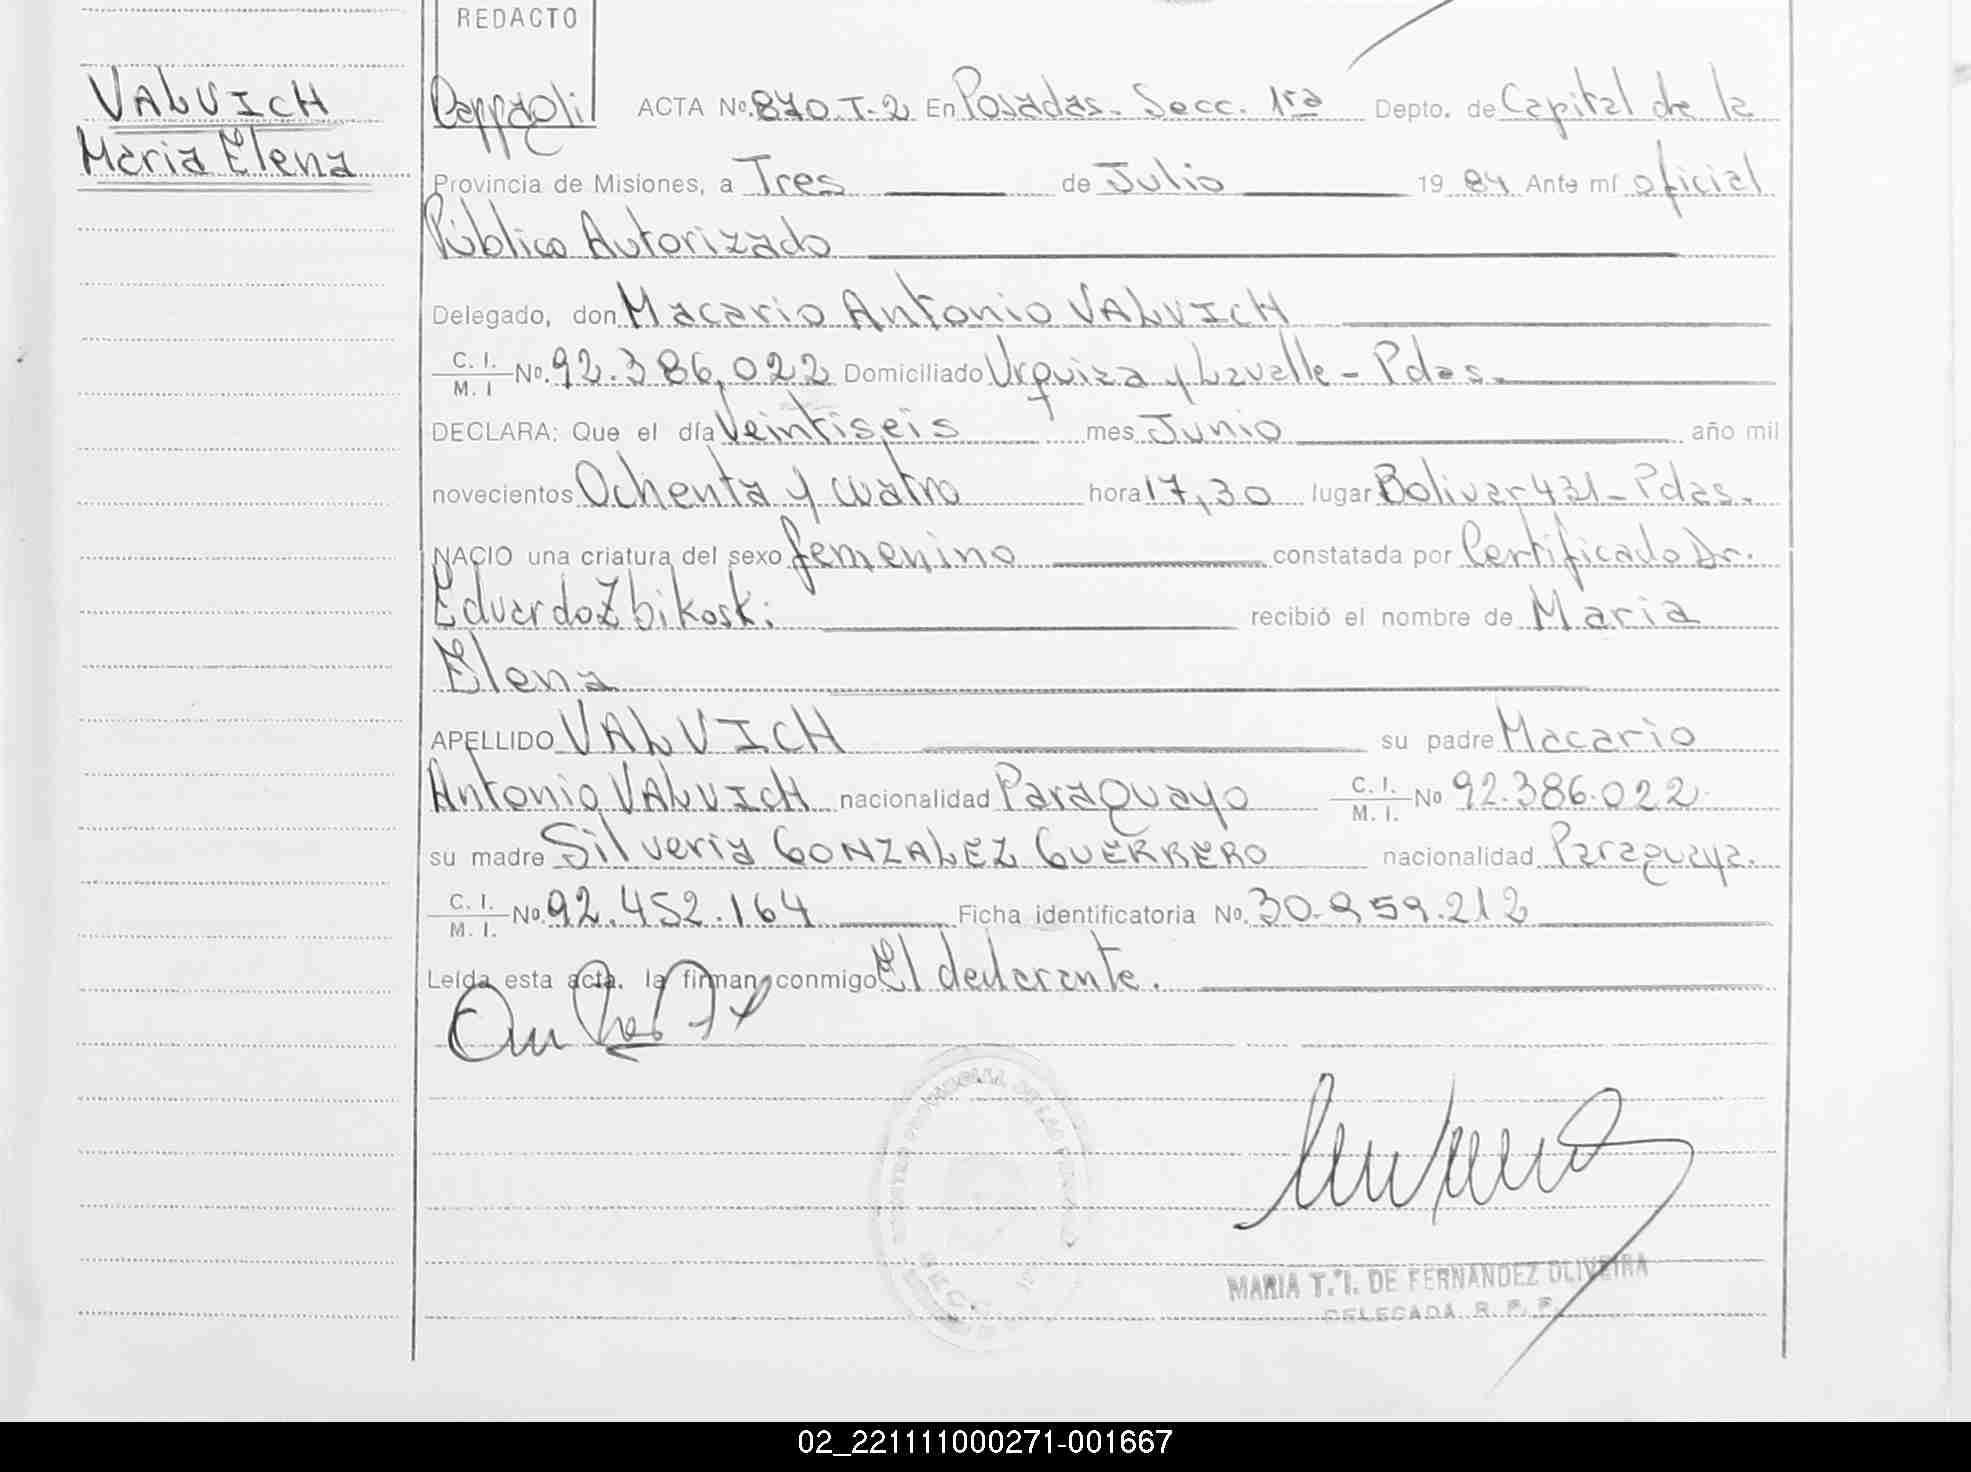 REDACTO
VALVICH
Maria Elena
Cappaoli ACTA Nº. 870.T-2 En Posadas - Secc. 1ra Depto. de Capital de la
Provincia de Misiones, a Tres de Julio 19 84 Ante mí oficial
Público Autorizado
Delegado, don Macario Antonio VALVICH
C. I.
M. I Nº. 92.386.022 Domiciliado Urquiza y Lavalle - Pdas.
DECLARA: Que el día Veintiseis mes Junio año mil
novecientos Ochenta y cuatro hora 17,30 lugar Bolivar 431 - Pdas.
NACIO una criatura del sexo femenino constatada por Certificado Dr.
Eduardo Zbikoski recibió el nombre de Maria
Elena
APELLIDO VALVICH su padre Macario
Antonio VALVICH nacionalidad Paraguayo C. I.
M. I. Nº 92.386.022
su madre Silveria GONZALEZ GUERRERO nacionalidad Paraguaya.
C. I.
M. I. Nº. 92.452.164 Ficha identificatoria Nº. 30.959.212
Leída esta acta, la firman conmigo El declarante.
MARIA T. I. DE FERNANDEZ OLIVEIRA
DELEGADA R. P. P.
02_221111000271-001667